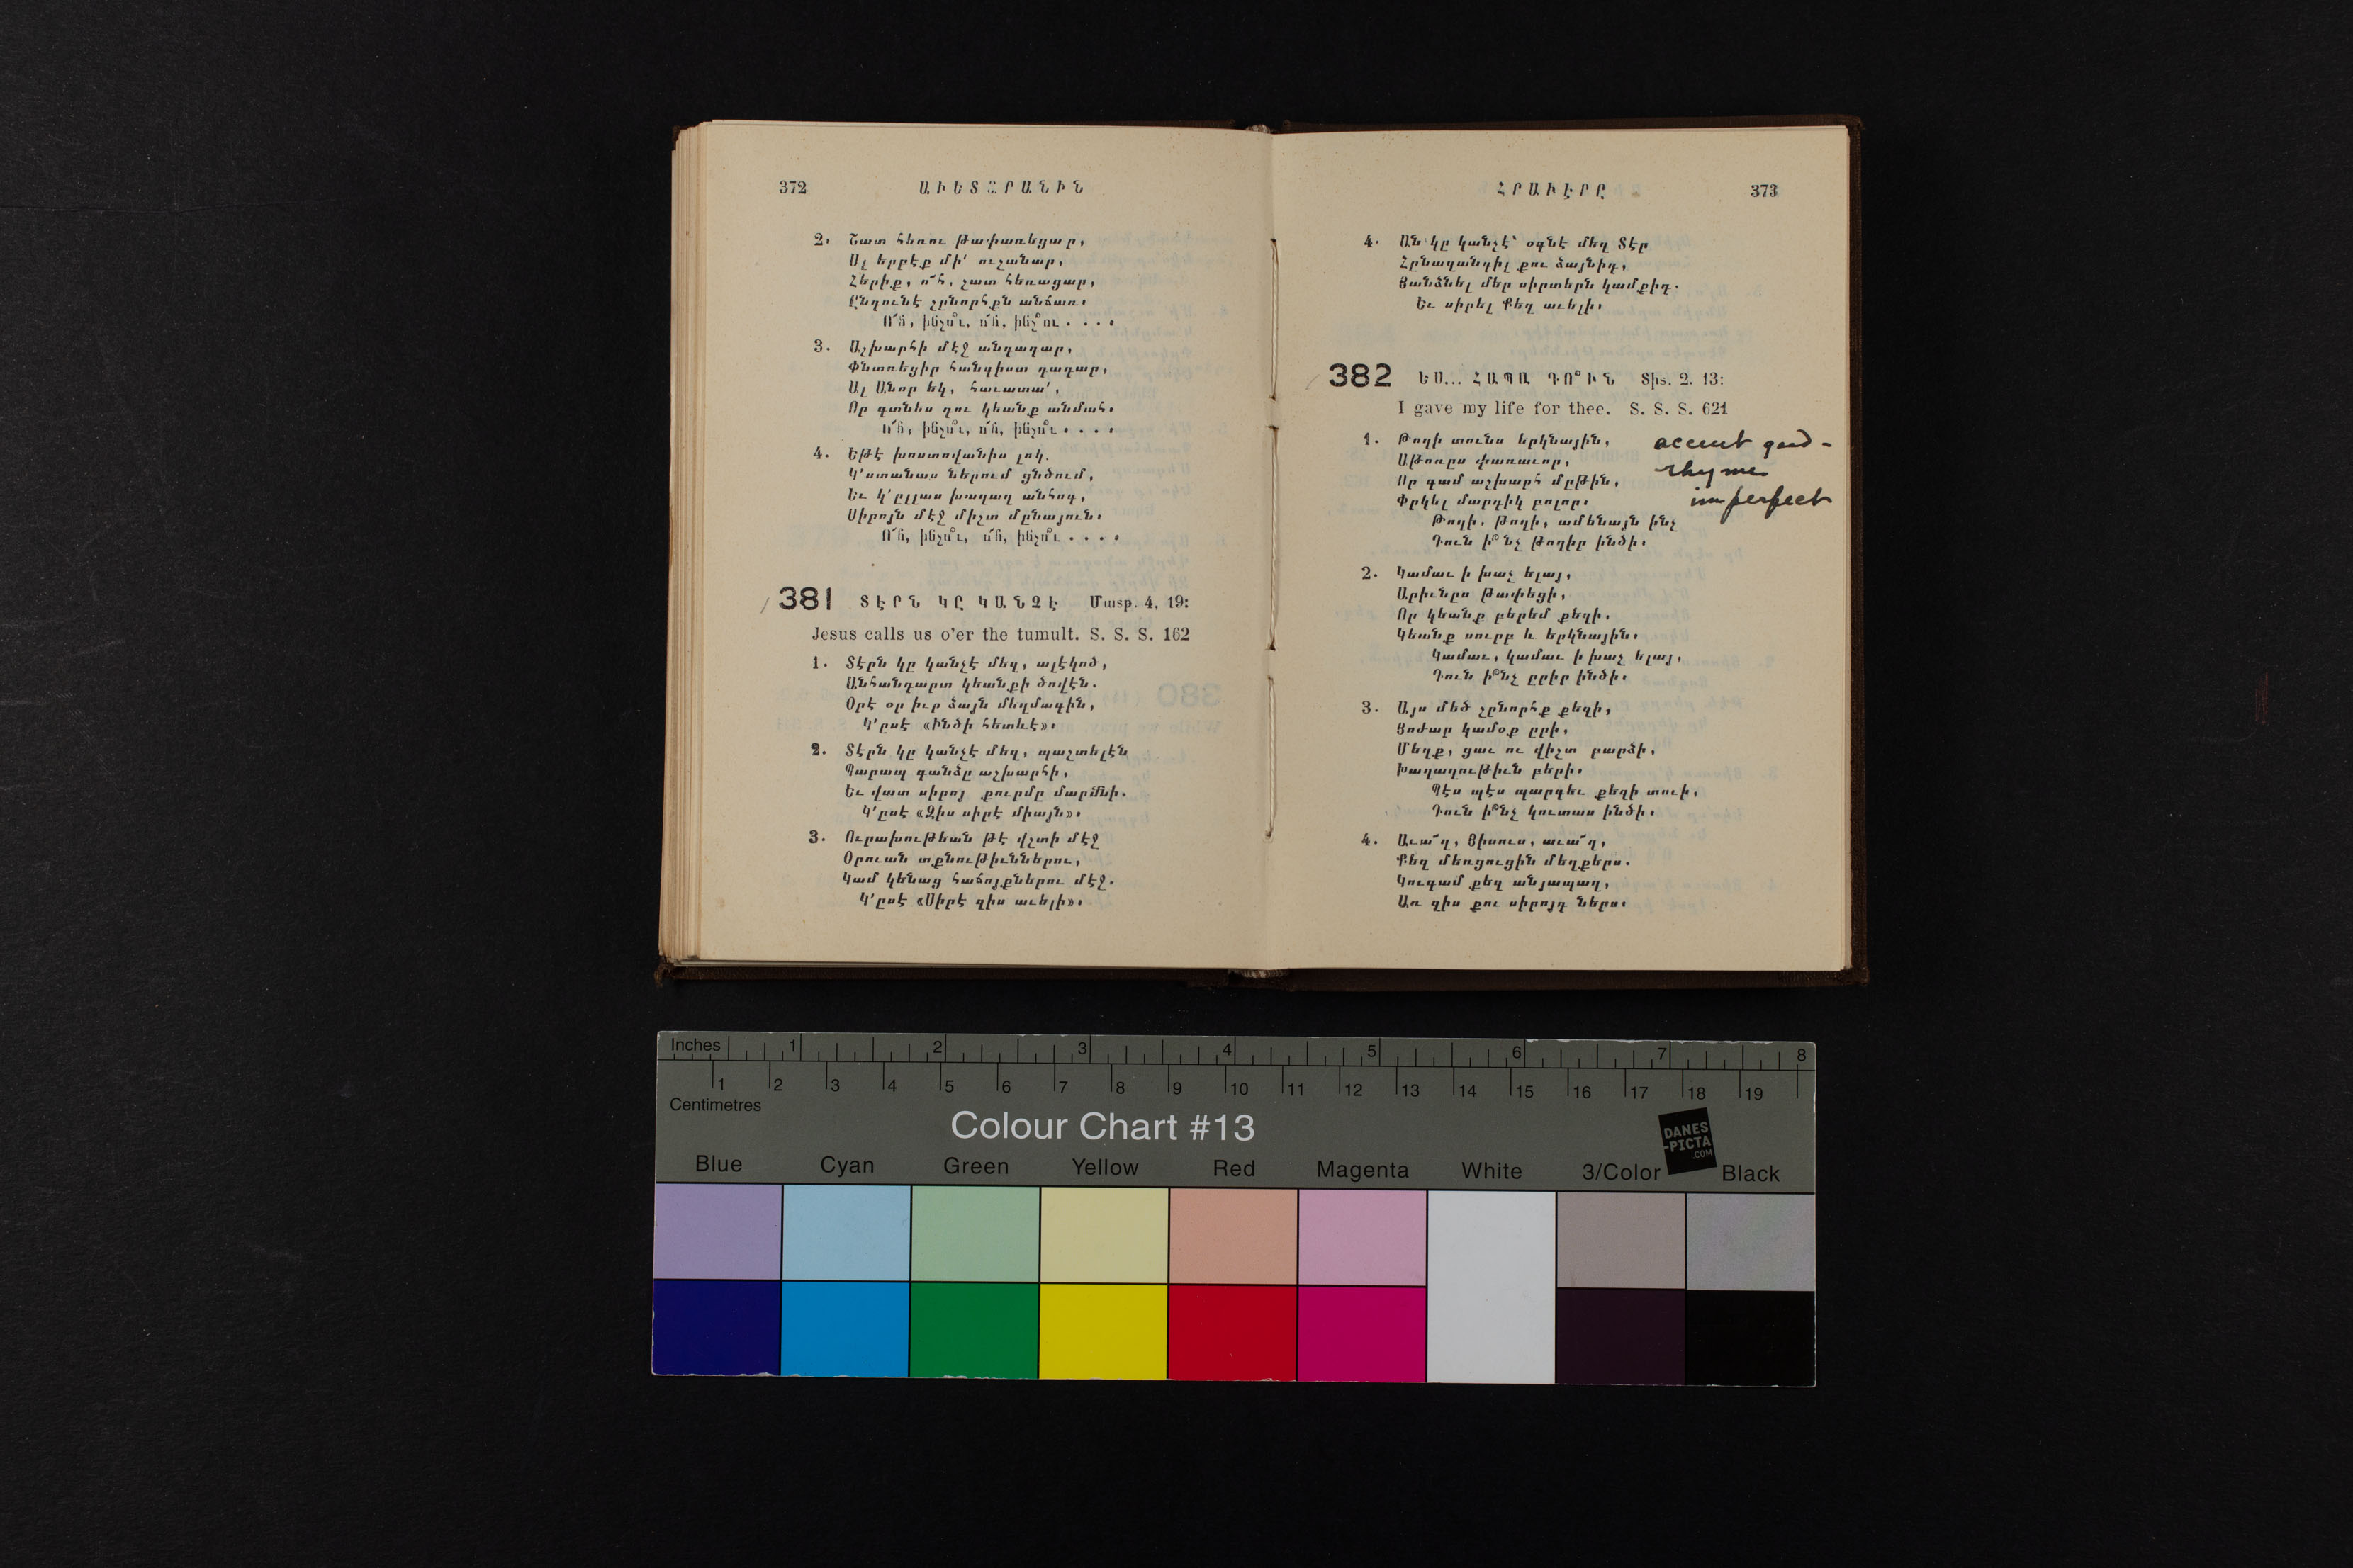 372 ԱՒԵՏԱՐԱՆԻՆ
2. Շատ հեռու թափառեցար,
Ալ երբէք մի՛ ուշանար,
Հերիք, ո՜հ, շատ հեռացար,
Ընդունէ շընորհքն անճառ։
Ո՜հ, ինչո՞ւ, ո՜հ, ինչո՞ւ....
3. Աշխարհի մէջ անդադար,
Փնտռեցիր հանգիստ դադար,
Ալ Անոր եկ, հաւատա՛,
Որ գտնես դու կեանք անմահ։
Ո՜հ, ինչո՞ւ, ո՜հ, ինչո՞ւ....
4. Եթէ խոստովանիս լոկ.
Կ՚ստանաս ներում ցնծում,
Եւ կ՚ըլլաս խաղաղ անհոգ,
Սիրոյն մէջ միշտ մընայուն։
Ո՜հ, ինչո՞ւ, ո՜հ, ինչո՞ւ....
381 ՏԷՐՆ ԿԸ ԿԱՆՉԷ Մատթ. 4, 19:
Jesus calls us o'er the tumult. S. S. S. 162
1. Տէրն կը կանչէ մեզ, ալէկոծ,
Անհանդարտ կեանքի ծովէն.
Օրէ օր իւր ձայն մեղմագին,
Կ՚ըսէ «Ինծի հետևէ»։
2. Տէրն կը կանչէ մեզ, պաշտելէն
Պարապ գանձը աշխարհի,
Եւ վատ սիրոյ քուրմը մարմնի.
Կ՚ըսէ «Զիս սիրէ միայն»։
3. Ուրախութեան թէ վշտի մէջ
Օրուան տքնութիւններու,
Կամ կենաց հաճոյքներու մէջ.
Կ՚ըսէ «Սիրէ զիս աւելի»։
ՀՐԱՒԷՐԸ 373
4. Ան կը կանչէ՝ օգնէ մեզ Տէր
Հընազանդիլ քու ձայնիդ,
Յանձնել մեր սիրտերն կամքիդ.
Եւ սիրել Քեզ աւելի։
382 ԵՍ... ՀԱՊԱ ԴՈ՞ՒՆ Տիտ. 2. 13:
I gave my life for thee. S. S. S. 621
1. Թողի տունս երկնային,
Աթոռըս փառաւոր,
Որ գամ աշխարհ մըթին,
Փրկել մարդիկ բոլոր։
Թողի, թողի, ամենայն ինչ
Դուն ի՞նչ թողիր ինծի։
accent good -
rhymes
imperfect
2. Կամաւ ի խաչ ելայ,
Արիւնըս թափեցի,
Որ կեանք բերեմ քեզի,
Կեանք սուրբ և երկնային։
Կամաւ, կամաւ ի խաչ ելայ,
Դուն ի՞նչ ըրիր ինծի։
3. Այս մեծ շընորհք քեզի,
Յօժար կամօք ըրի,
Մեղք, ցաւ ու վիշտ բարձի,
Խաղաղութիւն բերի։
Պէս պէս պարգեւ քեզի տուի,
Դուն ի՞նչ կուտաս ինծի։
4. Աւա՜ղ, Յիսուս, աւա՜ղ,
Քեզ մեռցուցին մեղքերս.
Կուգամ քեզ անյապաղ,
Առ զիս քու սիրոյդ ներս։
Inches 1 2 3 4 5 6 7 8
1 2 3 4 5 6 7 8 9 10 11 12 13 14 15 16 17 18 19
Centimetres
Colour Chart #13
DANES
-PICTA
.COM
Blue Cyan Green Yellow Red Magenta White 3/Color Black